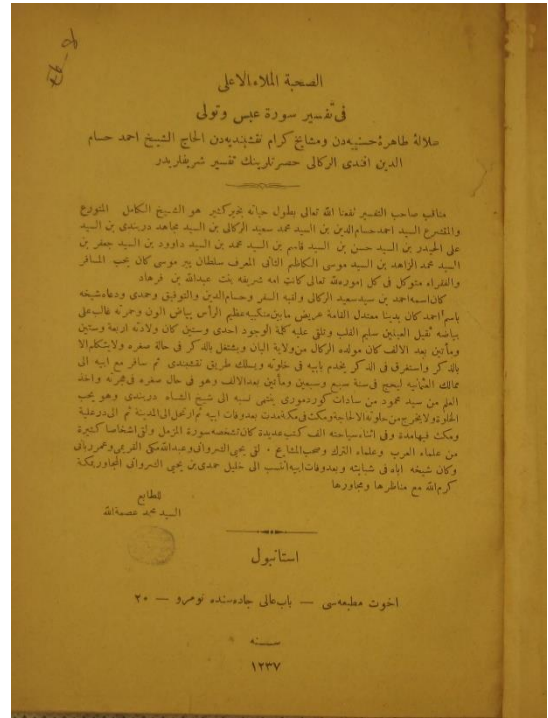 الصحبة الملاء الاعلى
فى تفسير سورة عبس وتولى
سلالهٔ طاهرهٔ حسنيه دن ومشايخ كرام نقشبنديه دن الحاج الشيخ احمد حسام
الدين افندى الركالى حضرتلرينك تفسير شريفلريدر
مناقب صاحب التفسير نفعنا الله تعالى بطول حياته بخير كثير هو الشيخ الكامل المتورع
والمتشرع السيد احمد حسام الدين بن السيد محمد سعيد الركالى بن السيد مجاهد دربندى بن السيد
على الحيدر بن السيد حسن بن السيد قاسم بن السيد محمد بن السيد داوود بن السيد جعفر بن
السيد محمد الزاهد بن السيد موسى الكاظم الثانى المعرف سلطان پير موسى كان يحب المسافر
والفقراء متوكل فى كل اموره لله تعالى كانت امه شريفه بنت عبدالله بن فرهاد
كان اسمه احمد بن سيد سعيد الركالى ولقبه السفر وحسام الدين والتوفيق وحمدى ودعاه شيخه
باسم احمد كان بدينا معتدل القامة عريض مابين منكبيه عظيم الرأس بياض الون وحمرته غالب على
بياضه ثقيل العينين سليم القلب وتلقى عليه كلة الوجود احدى وستين كان ولادته اربعة وستين
ومأتين بعد الالف كان مولده الركال من ولاية اليان ويشتغل بالذكر فى حالة صغره ولايتكلم الا
بالذكر واستغرق فى الذكر يخدم بابيه فى خلوته ويسلك طريق نقشبندى ثم سافر مع ابيه الى
ممالك العثمانيه ليحج فى سنة سبع وسبعين ومأتين بعد الالف وهو فى حال صغره فى هجرته واخذ
العلم من سيد محمود من سادات كوردمورى ينتهى نسبه الى شيخ الشماء دربندى وهو يحب
الخلوة ولايخرج من خلوته الا لحاجة ومكث فى مكة مدت بعد وفات ابيه ثم ارتحل الى المدينة ثم الى درعلية
ومكث فيها مدة وفى اثناء سياحته الف كتب عديدة كان تشخصه سورة المزمل ولقى اشخاصا كثيرة
من علماء العرب وعلماء الترك وصحب المشايخ ٠ لقى يحيى الشروانى وعبدالله مكى القريمى وعمر ربانى
وكان شيخه اباه فى شبابته وبعد وفات ابيه انتسب الى خليل حمدى بن يحيى الشروانى المجاور بمكة
كرم الله مع مناظرها ومجاورها
للطابع
السيد محمد عصمة الله
استانبول
اخوت مطبعه سى — باب عالى جاده سنده نومرو — ٢٠
سنه
١٢٣٧